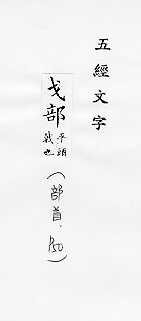 五經文字
戈部
平頭
戟也
(部首、150)